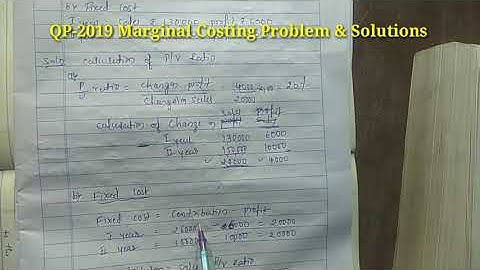 by Fixed Cost
I year sales ₹ 130000 profit ₹ 6000
QP-2019 Marginal Costing Problem & Solutions
Soln calculation of P/V Ratio
P/v ratio = change in profit = 4000 = 20%
Change in sales 20000
calculation of Change in sales profit
I year 130000 6000
II year 150000 10000
20000 4000
by Fixed Cost
Fixed cost = Contribution Profit
I year = 26000 6000 = 20000
II year = 10000 = 20000
sales P/V Ratio